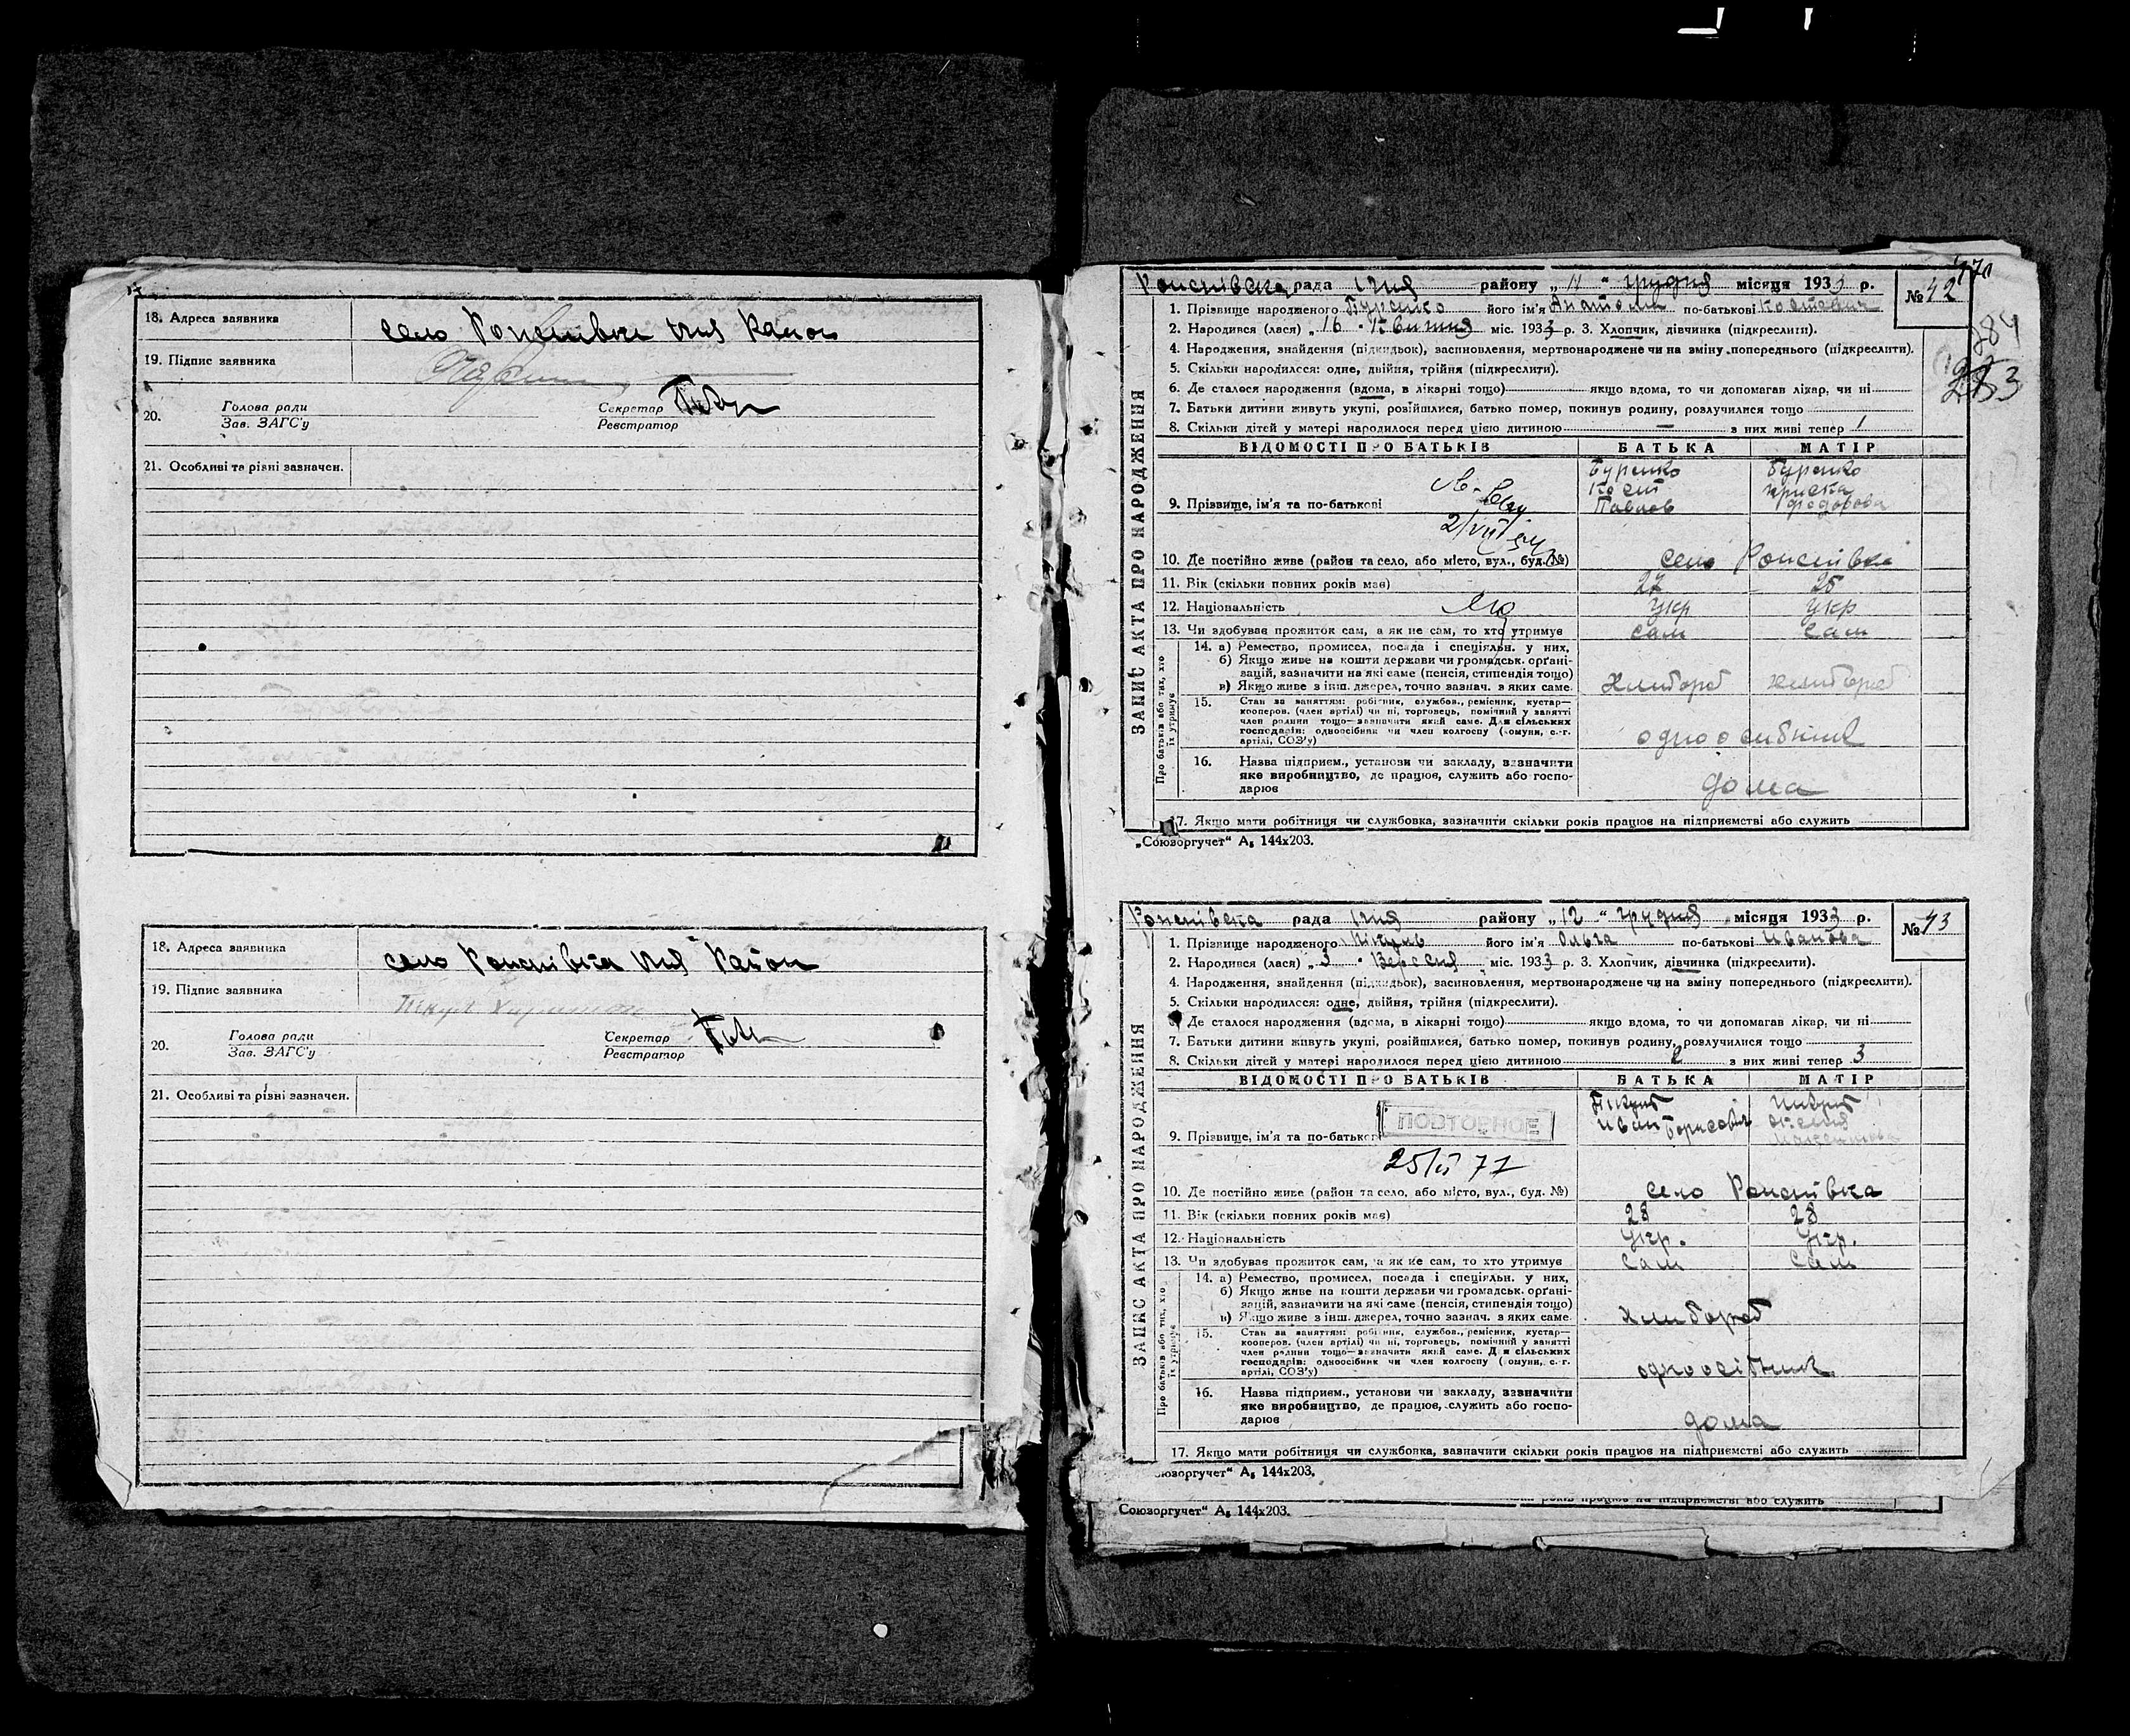 18. Адреса заявника
село район
19. Підпис заявника
20. Голова ради
Зав. ЗАГС'у
Секретар
Реєстратор
21. Особливі та різні зазначен.
18. Адреса заявника
село район
19. Підпис заявника
20. Голова ради
Зав. ЗАГС'у
Секретар
Реєстратор
21. Особливі та різні зазначен.
рада району „11“ грудня місяця 1933 р.
№ 42
284
283
ЗАПИС АКТА ПРО НАРОДЖЕННЯ
1. Прізвище народженого Буренко його ім'я Анатолий по-батькові
2. Народився (лася) „16 • Квитня міс. 1933 р. 3. Хлопчик, дівчинка (підкреслити).
4. Народження, знайдення (підкидьок), засиновлення, мертвонароджене чи на зміну попереднього (підкреслити).
5. Скільки народилося: одне, двійня, трійня (підкреслити).
6. Де сталося народження (вдома, в лікарні тощо) якщо вдома, то чи допомагав лікар, чи ні
7. Батьки дитини живуть укупі, розійшлися, батько помер, покинув родину, розлучилися тощо
8. Скільки дітей у матері народилося перед цією дитиною — з них живі тепер 1
ВІДОМОСТІ ПРО БАТЬКІВ БАТЬКА МАТІР
Буренко Буренко
Кост
9. Прізвище, ім'я та по-батькові Павлов Федорова
2/VII 54
10. Де постійно живе (район та село, або місто, вул., буд. №) село
11. Вік (скільки повних років має) 27 25
12. Національність Укр Укр
13. Чи здобував прожиток сам, а як не сам, то хто утримує сам сам
Про батьків або тих, хто їх утримує
14. а) Ремество, промисел, посада і спеціяльн. у них,
б) Якщо живе на кошти держави чи громадськ. орґані-
зацій, зазначити на які саме (пенсія, стипендія тощо)
в) Якщо живе з інш. джерел, точно зазнач. з яких саме. хлибороб хлибороб
15. Стан за заняттям: робітник, службов., ремісник, кустар—
кооперов. (член артілі) чи ні, торговець, помічний у занятті
член родини тощо—зазначити який саме. Для сільських
господарів: одноосібник чи член колгоспу (комуни, с.-г.
артілі, СОЗ'у)
16. Назва підприєм., установи чи закладу, зазначити
яке виробництво, де працює, служить або госпо-
дарює
дома
17. Якщо мати робітниця чи службовка, зазначити скільки років працює на підприємстві або служить
„Союзоргучет“ А₅ 144х203.
рада району „12“ грудня місяця 1933 р.
№ 43
ЗАПИС АКТА ПРО НАРОДЖЕННЯ
1. Прізвище народженого його ім'я Ольга по-батькові Иванова
2. Народився (лася) „3 • Вересня міс. 1933 р. 3. Хлопчик, дівчинка (підкреслити).
4. Народження, знайдення (підкидьок), засиновлення, мертвонароджене чи на зміну попереднього (підкреслити).
5. Скільки народилося: одне, двійня, трійня (підкреслити).
Де сталося народження (вдома, в лікарні тощо) якщо вдома, то чи допомагав лікар, чи ні
7. Батьки дитини живуть укупі, розійшлися, батько помер, покинув родину, розлучилися тощо
8. Скільки дітей у матері народилося перед цією дитиною 2 з них живі тепер 3
ВІДОМОСТІ ПРО БАТЬКІВ БАТЬКА МАТІР
ПОВТОРНОЕ
Иван Борисович
9. Прізвище, ім'я та по-батькові
10. Де постійно живе (район та село, або місто, вул., буд. №) село
11. Вік (скільки повних років має) 28 28
12. Національність Укр. Укр.
13. Чи здобував прожиток сам, а як не сам, то хто утримує сам сам
Про батьків або тих, хто їх утримує
14. а) Ремество, промисел, посада і спеціяльн. у них,
б) Якщо живе на кошти держави чи громадськ. орґані-
зацій, зазначити на які саме (пенсія, стипендія тощо)
в) Якщо живе з інш. джерел, точно зазнач. з яких саме. хлибороб
15. Стан за заняттям: робітник, службов., ремісник, кустар—
кооперов. (член артілі) чи ні, торговець, помічний у занятті
член родини тощо—зазначити який саме. Для сільських
господарів: одноосібник чи член колгоспу (комуни, с.-г.
артілі, СОЗ'у) одноосібник
16. Назва підприєм., установи чи закладу, зазначити
яке виробництво, де працює, служить або госпо-
дарює
дома
17. Якщо мати робітниця чи службовка, зазначити скільки років працює на підприємстві або служить
юзоргучет“ А₅ 144х203.
років працює на підприємстві або служить
Союзоргучет“ А₅ 144х203.